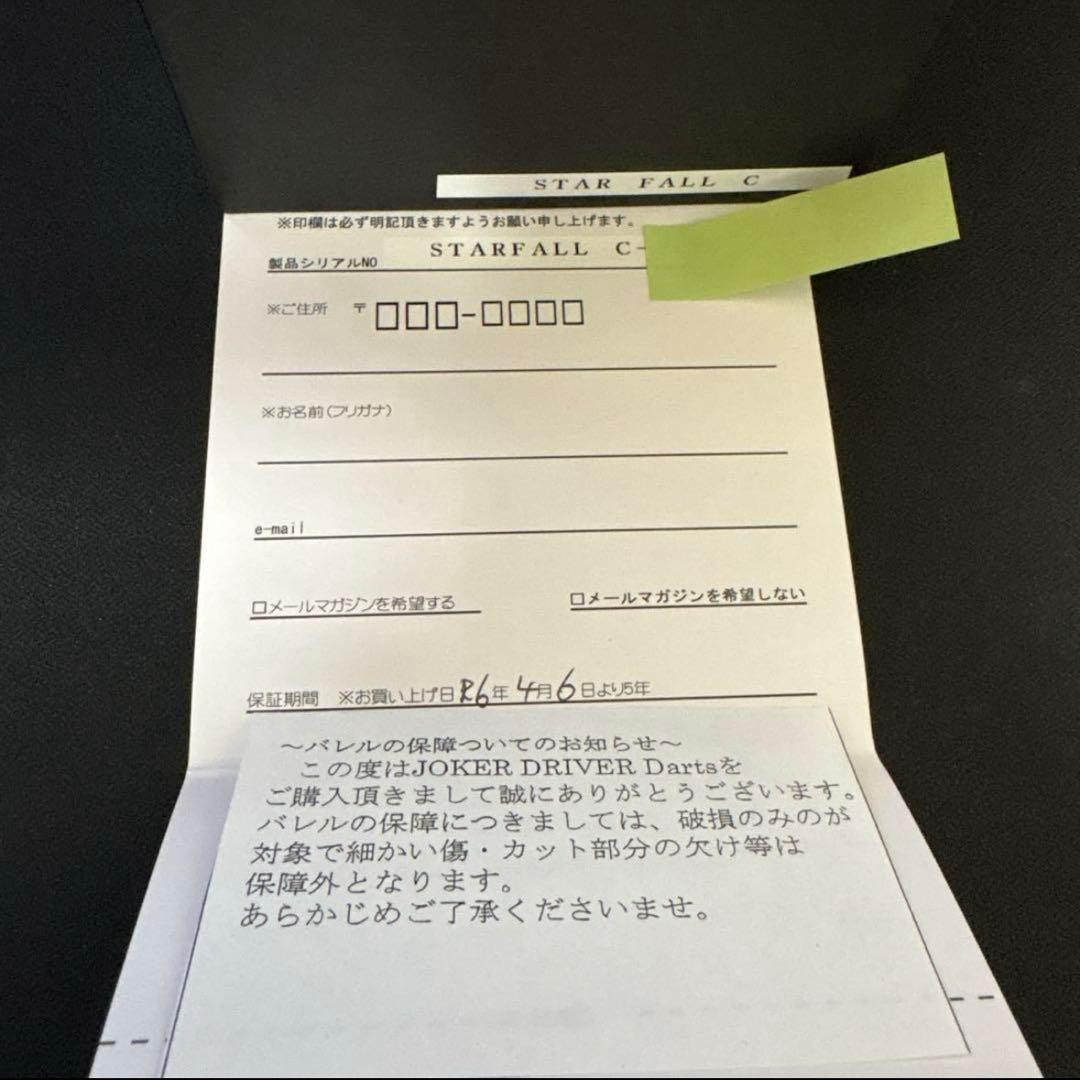 STAR FALL C
※印欄は必ず明記頂きますようお願い申し上げます。
製品シリアルNO STARFALL C-
※ご住所 〒□□□-□□□□
※お名前(フリガナ)
e-mail
□メールマガジンを希望する □メールマガジンを希望しない
保証期間 ※お買い上げ日R6年4月6日より5年
～バレルの保障ついてのお知らせ～
この度はJOKER DRIVER Dartsを
ご購入頂きまして誠にありがとうございます。
バレルの保障につきましては、破損のみのが
対象で細かい傷・カット部分の欠け等は
保障外となります。
あらかじめご了承くださいませ。